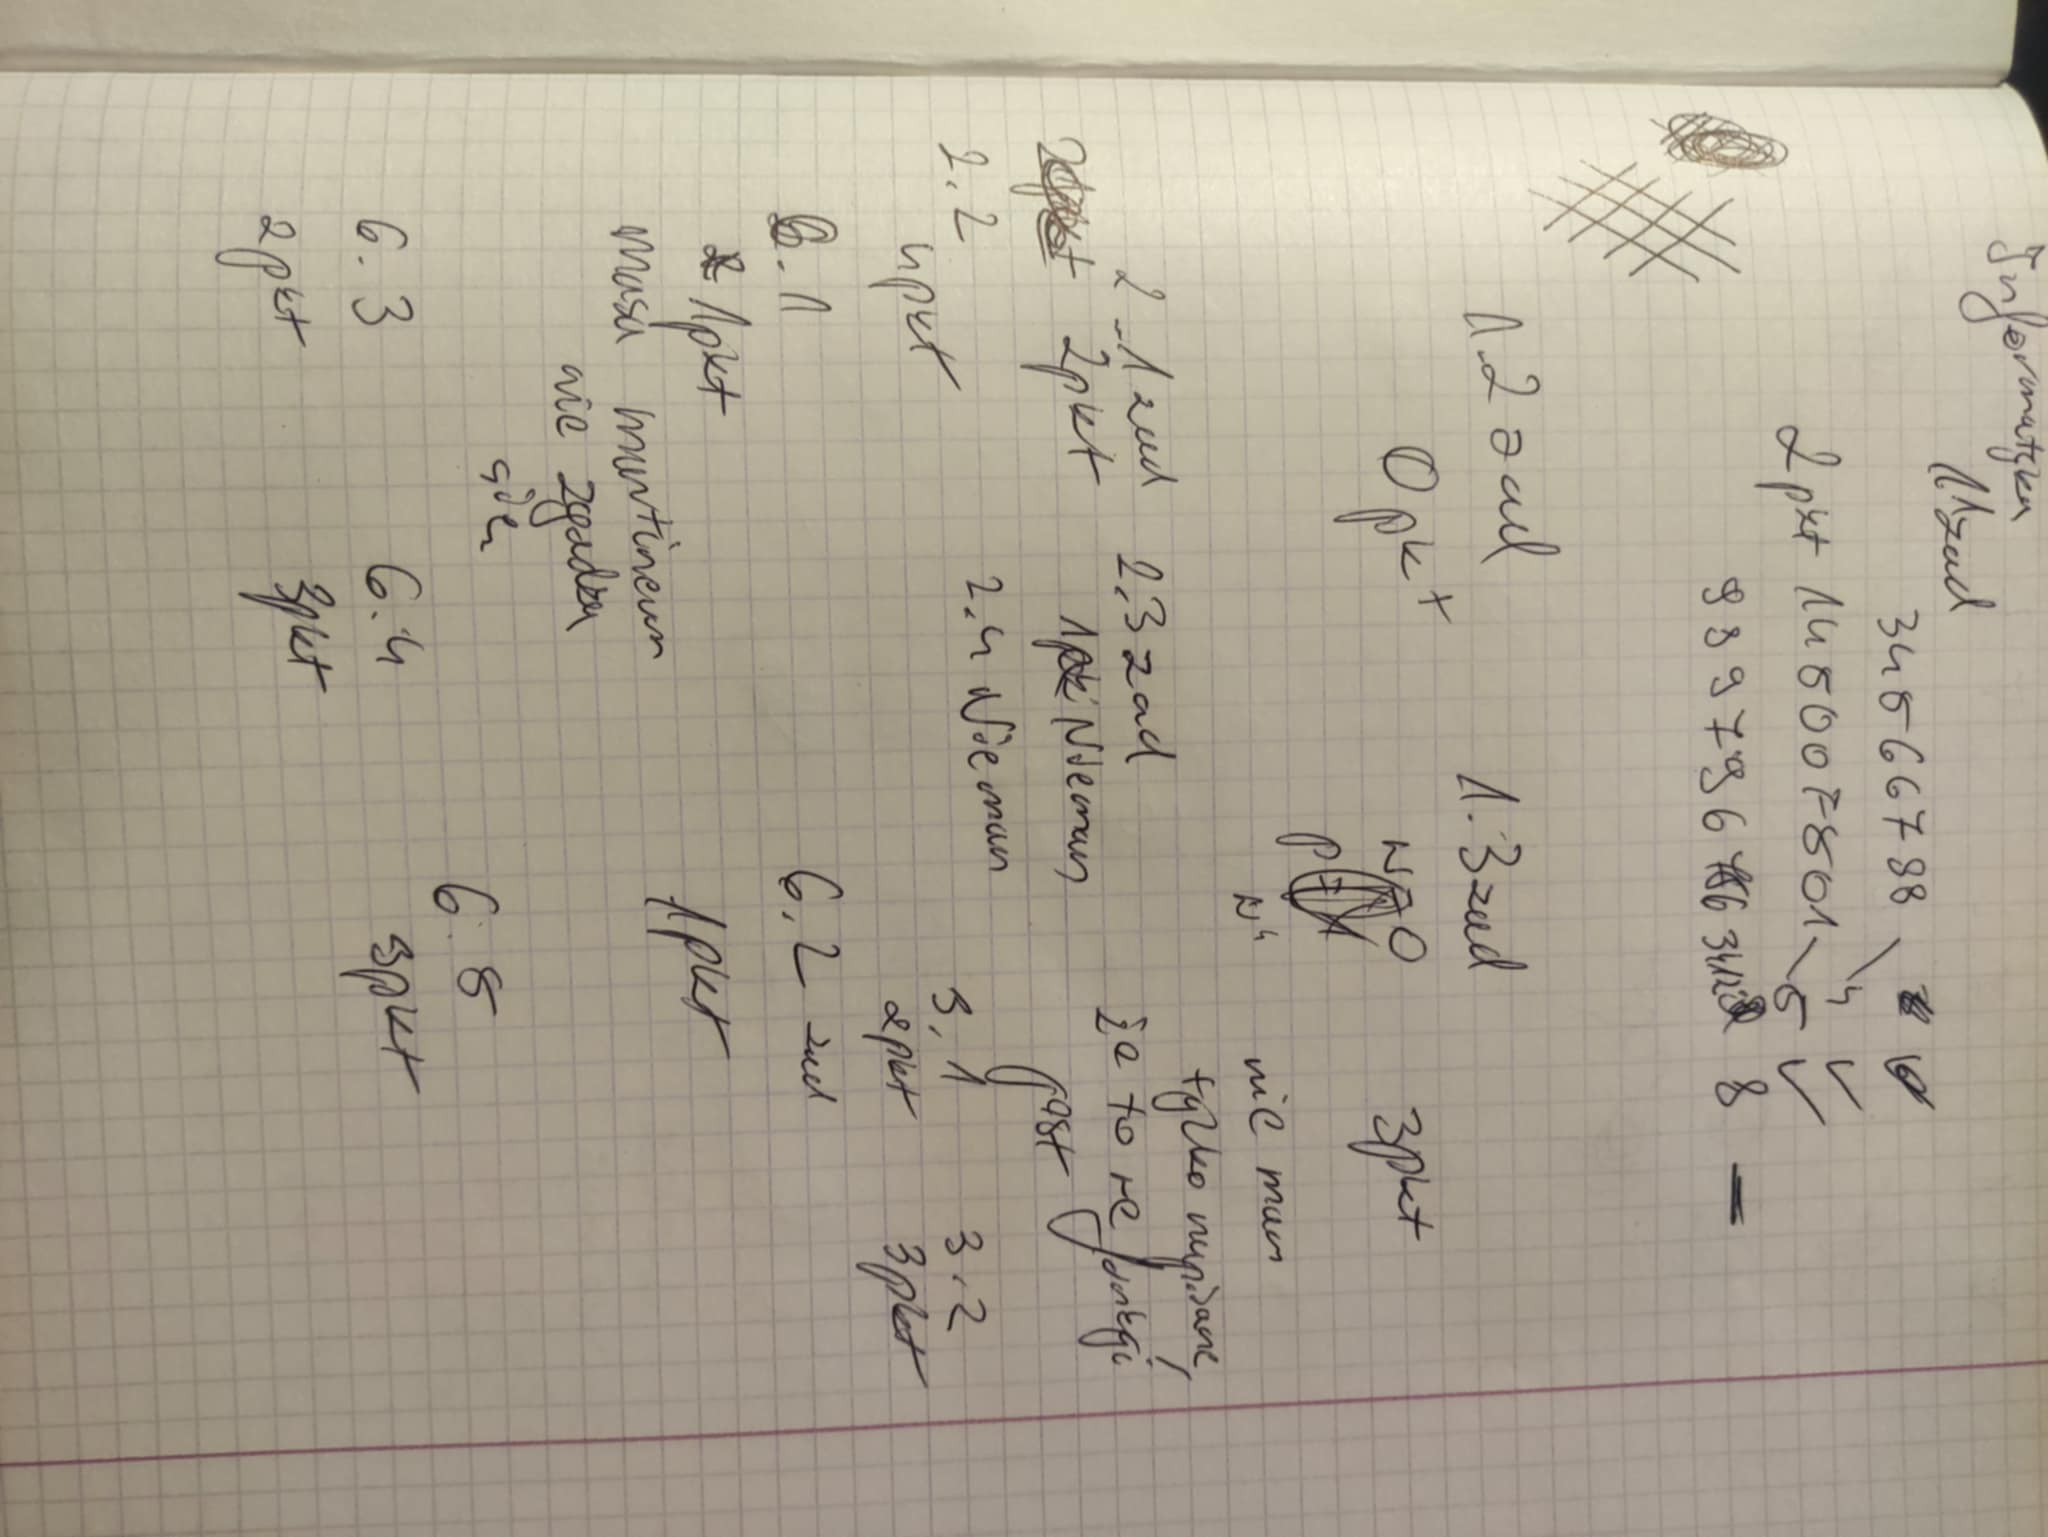 Informatyka
1.1 zad
34566788 4 ✓
2pkt 145007501 5 ✓
8 —
1.2 zad
0pkt
1.3 zad
N=0
3pkt
N⁴
nie mam
tylko napisane
że to re funkcji
2.1 zad
2pkt
2.3 zad
Nie mam
2.2
4pkt
2.4 Nie mam
3.1
2pkt
3.2
3pkt
6.1
1pkt
masa
nie zgadza
się
6.2 zad
1pkt
6.3
2pkt
6.4
3pkt
6.5
3pkt